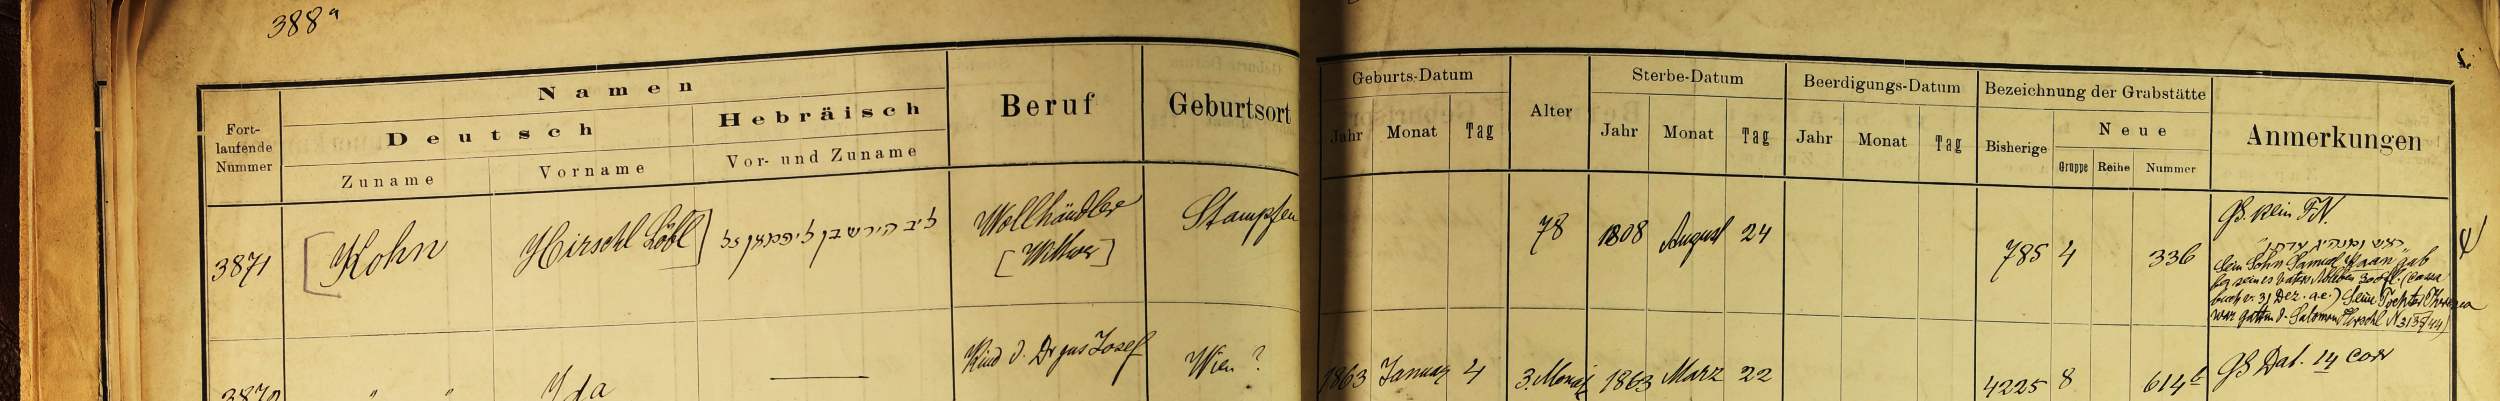 388a
Namen
Deutsch
Hebräisch
Fort-
laufende
Nummer
Zuname
Vorname
Vor- und Zuname
Beruf
Geburtsort
Geburts-Datum
Jahr Monat Tag
Alter
Sterbe-Datum
Jahr Monat Tag
Beerdigungs-Datum
Jahr Monat Tag
Bezeichnung der Grabstätte
Bisherige
Neue
Gruppe Reihe Nummer
Anmerkungen
3871 [Kohn Hirschl Löbl] ליב הירש בן ליפמאן זל
Wollhändler
[Witwer]
Stampfen
78 1808 August 24 785 4 336
GB. klein FN.
sein Sohn Samuel gab
seines Vaters 300 fl. (Cassa
buch v. 31 Dez. a.c.) Seine Tochter Theresia
war Gattin d. Salomon Hirschl N 3135/44)
3872 " " Ida — Kind d. Josef Wien ? 1863 Januar 4 3. Monat 1863 März 22 4225 8 614b GB Dat. 14 corr